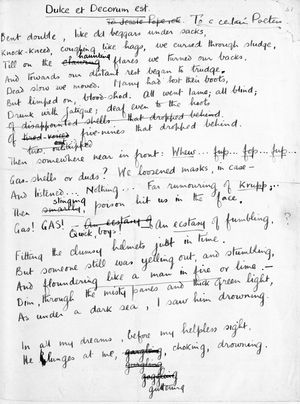 Dulce et Decorum est.
To Jessie Pope etc To a certain Poetess
Bent double, like old beggars under sacks,
Knock-kneed, coughing like hags, we cursed through sludge,
haunting
Till on the flares we turned our backs,
And towards our distant rest began to trudge.
Dead slow we moved. Many had lost their boots,
But limped on, blood-shod. All went lame; all blind;
Drunk with fatigue; deaf even to the hoots
of disappointed shells that dropped behind.
Of tired-voiced five-nines that dropped behind.
Then somewhere near in front: Whew... fup... fop... fup...
Gas-shells or duds? We loosened masks, in case —
And listened... Nothing... Far rumouring of Krupp;..
stinging
Then smartly, poison hit us in the face.
Gas! GAS! — An ecstasy of fumbling.
Quick, boys!
Fitting the clumsy helmets just in time.
But someone still was yelling out, and stumbling,
And floundering like a man in fire or lime. —
Dim, through the misty panes and thick green light,
As under a dark sea, I saw him drowning.
In all my dreams, before my helpless sight,
He plunges at me, gargling, choking, drowning.
gurgling
goggling
guttering